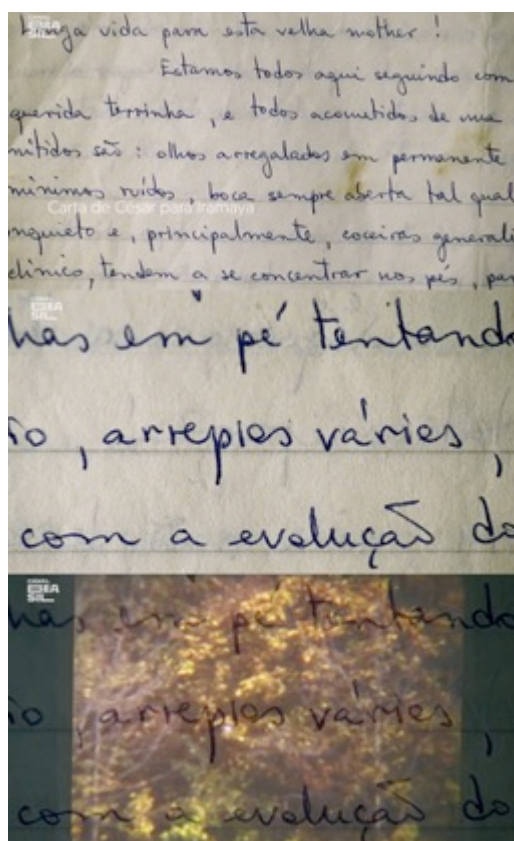 CANAL BRASIL
Longa vida para esta velha mother !
Estamos todos aqui seguindo com
querida terrinha, e todos acometidos de uma
mitidos são : olhos arregalados em permanente
mínimos ruídos, boca sempre aberta tal qual
Carta de César para Iramaya
nquieto e, principalmente, coceiras generali
clínico, tendem a se concentrar nos pés, par
CANAL BRASIL
has em pé tentando
io, arrepios vários,
com a evolução do
CANAL BRASIL
has em pé tentando
io, arrepios vários,
com a evolução do